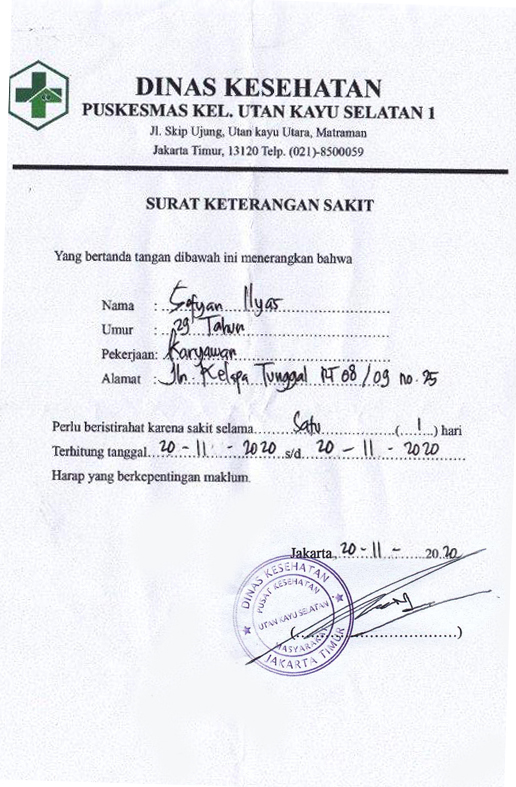 DINAS KESEHATAN
PUSKESMAS KEL. UTAN KAYU SELATAN 1
Jl. Skip Ujung, Utan kayu Utara, Matraman
Jakarta Timur, 13120 Telp. (021)-8500059
SURAT KETERANGAN SAKIT
Yang bertanda tangan dibawah ini menerangkan bahwa
Nama : Sofyan Ilyas
Umur : 29 Tahun
Pekerjaan: Karyawan
Alamat : Jln. Kelapa Tunggal RT 08/09 no. 25
Perlu beristirahat karena sakit selama Satu ( 1 ) hari
Terhitung tanggal 20 - 11 - 2020 s/d 20 - 11 - 2020
Harap yang berkepentingan maklum.
Jakarta, 20 - 11 - 20 20
DINAS KESEHATAN
PUSAT KESEHATAN
UTAN KAYU SELATAN
MASYARAKAT
JAKARTA TIMUR
(....................)